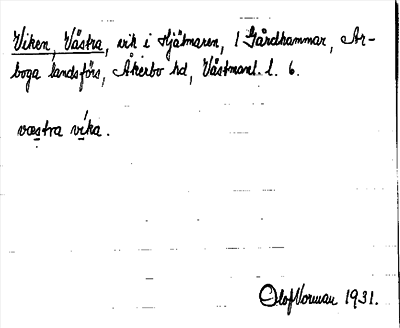 Viken, Västra, vik i Hjälmaren, 1 Gårdhammar, Ar-
boga landsförs, Åkerbo hd, Västmanl. l. 6.
væstra víka.
Olof Norman 1931.